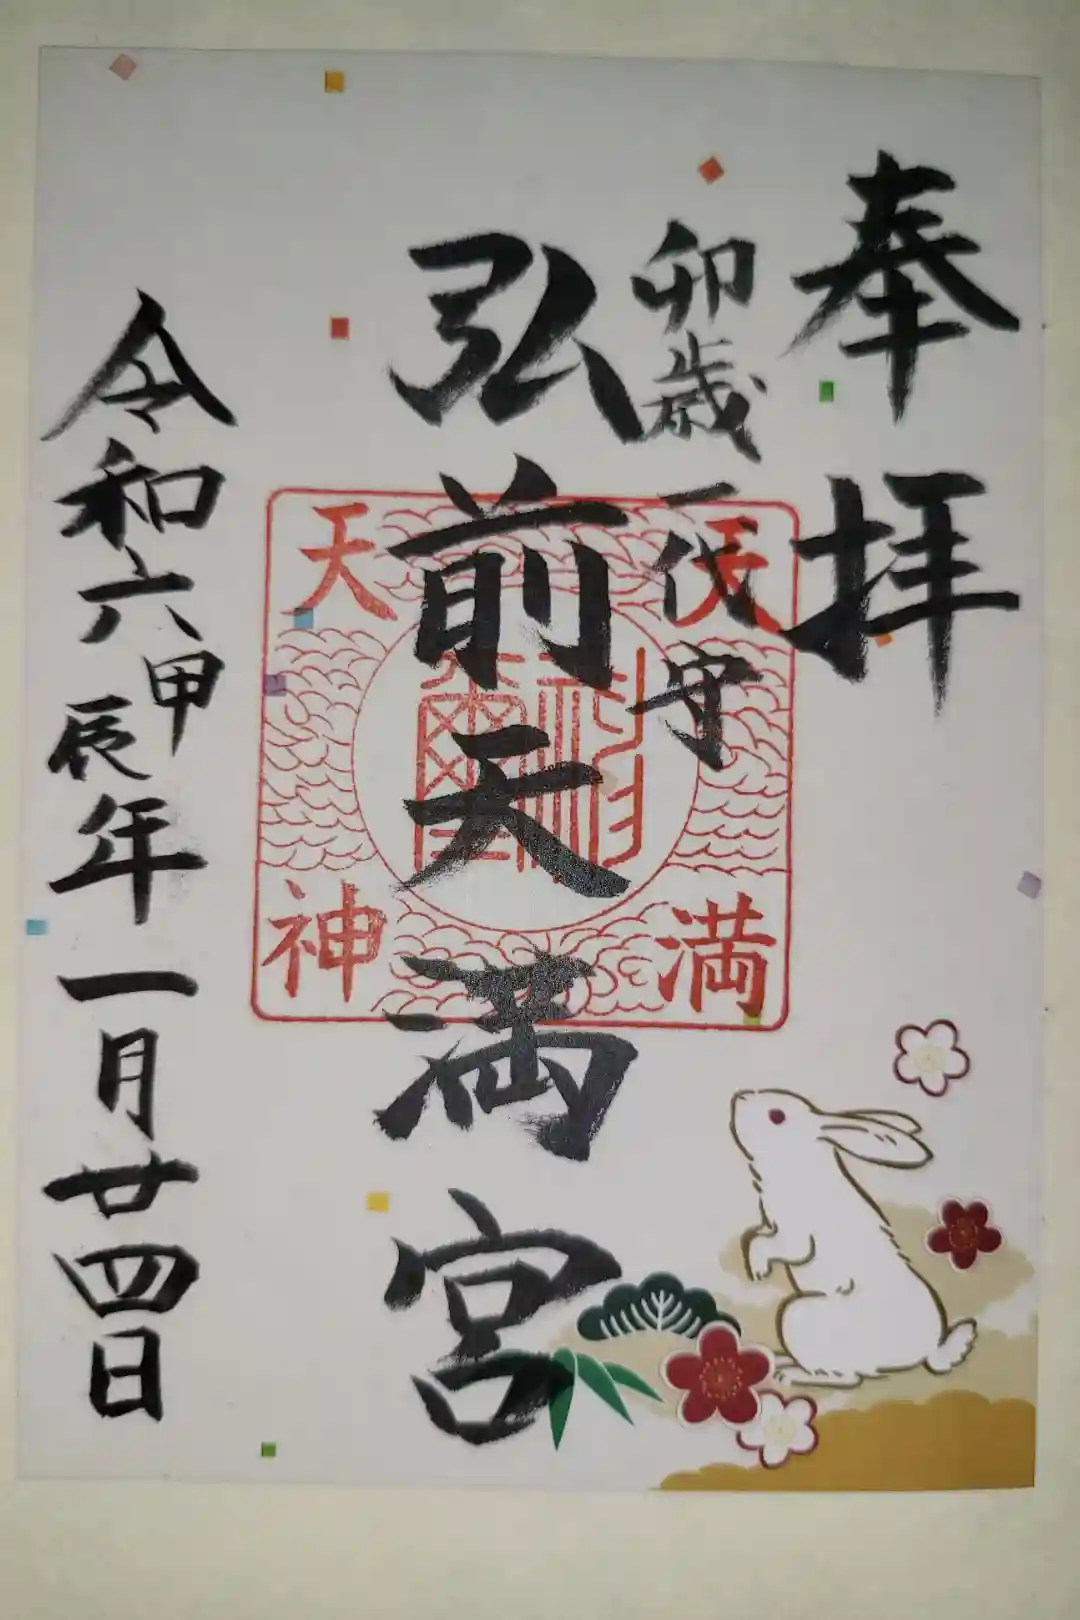 奉拝
卯歳
一代守
弘前天満宮
天満
天神
令和六甲辰年一月廿四日